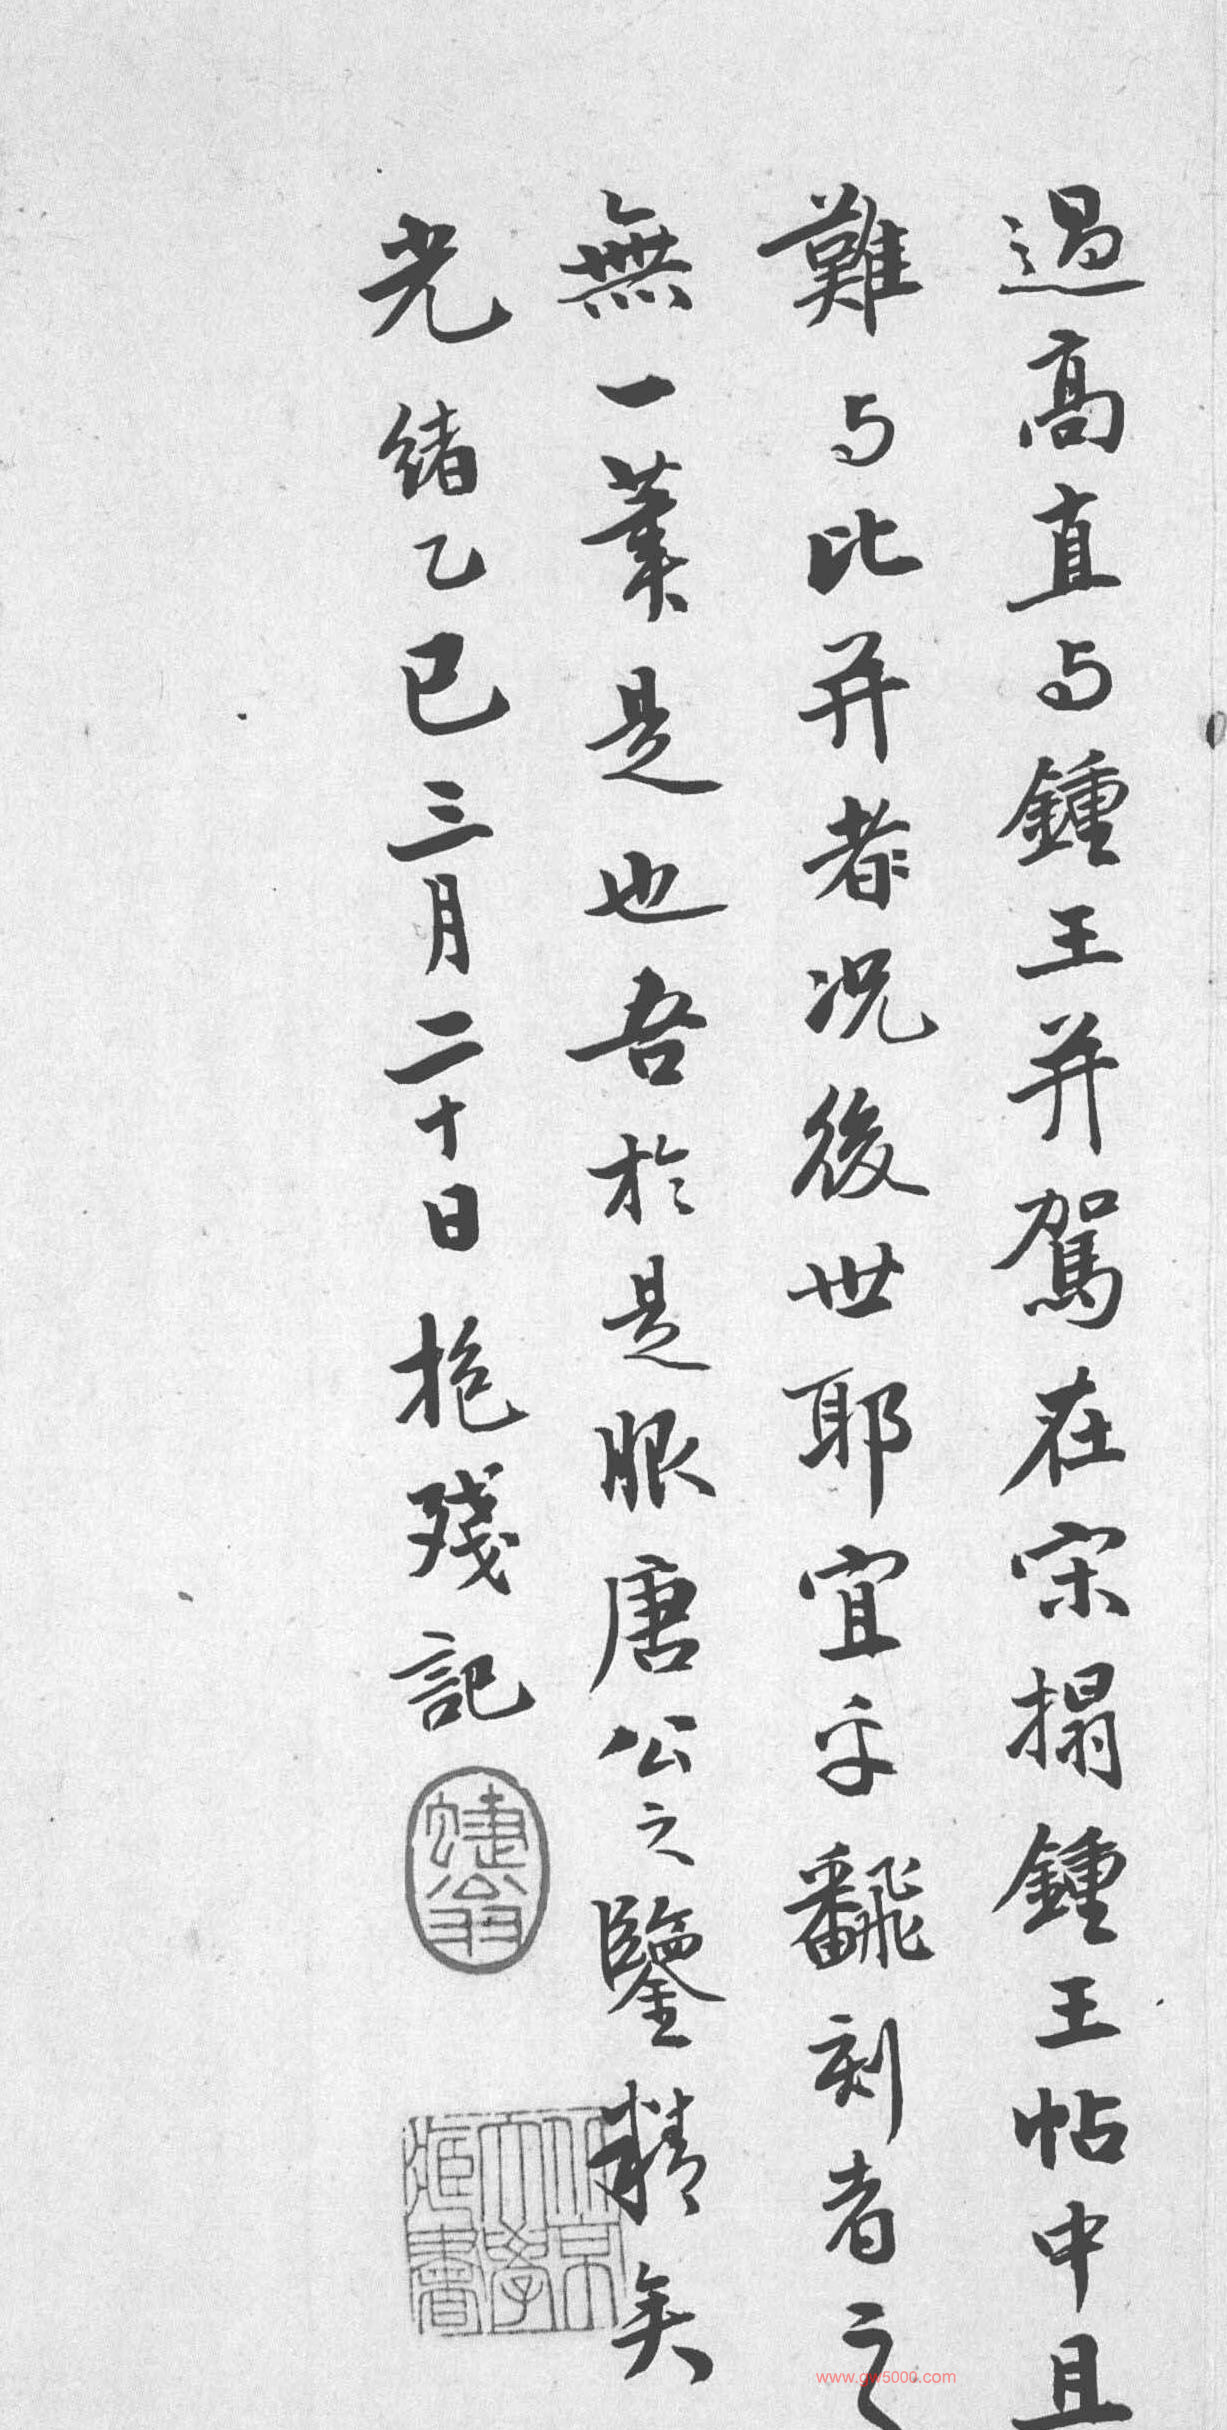 過高直与鍾王并駕在宋搨鍾王帖中且
難与比并者況後世耶宜乎飜刻者之
無一筆是也吾於是服唐公之鑒精矣
光緒乙巳三月二十日抱殘記
蜨翁
北京大學藏書
www.gw5000.com